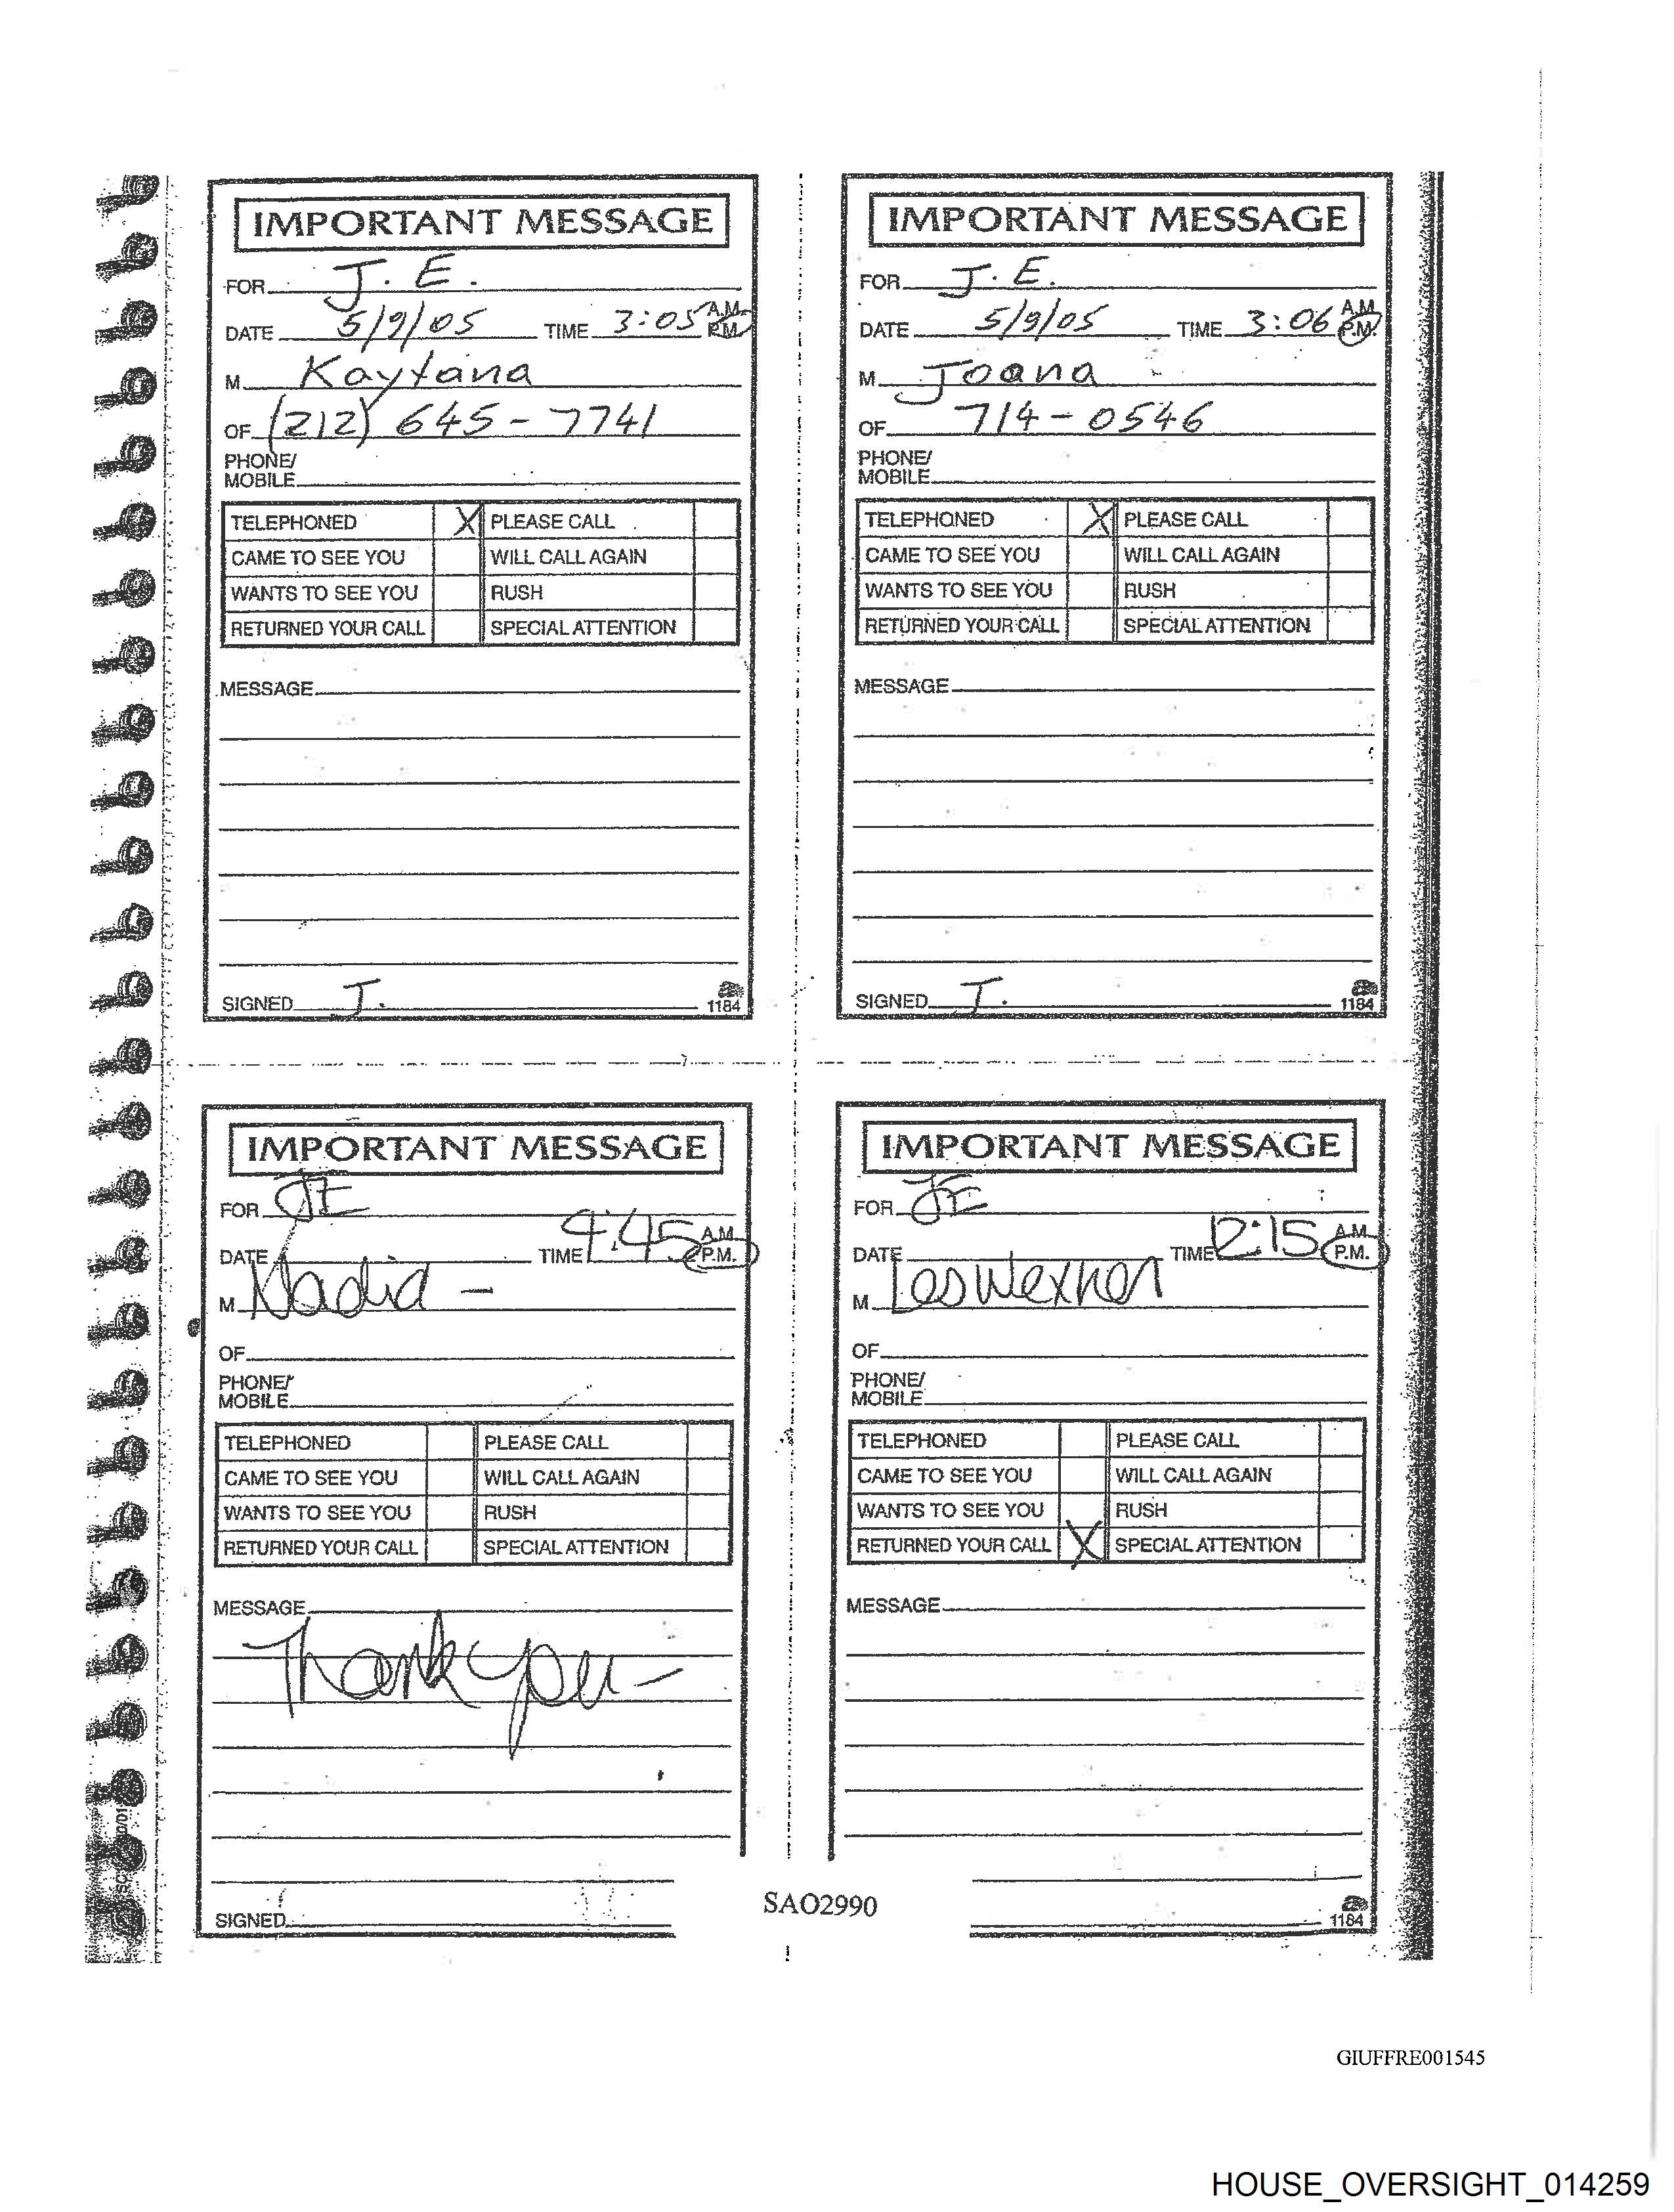 IMPORTANT MESSAGE
FOR J. E.
DATE 5/9/05 TIME 3:05 A.M. P.M.
M Kaytana
OF (212) 645-7741
PHONE/
MOBILE
TELEPHONED X PLEASE CALL
CAME TO SEE YOU WILL CALL AGAIN
WANTS TO SEE YOU RUSH
RETURNED YOUR CALL SPECIAL ATTENTION
MESSAGE
SIGNED J. 1184
IMPORTANT MESSAGE
FOR J. E.
DATE 5/9/05 TIME 3:06 A.M. P.M.
M Joana
OF 714-0546
PHONE/
MOBILE
TELEPHONED X PLEASE CALL
CAME TO SEE YOU WILL CALL AGAIN
WANTS TO SEE YOU RUSH
RETURNED YOUR CALL SPECIAL ATTENTION
MESSAGE
SIGNED J. 1184
IMPORTANT MESSAGE
FOR JE
DATE TIME 4:45 A.M. P.M.
M Nadia -
OF
PHONE/
MOBILE
TELEPHONED PLEASE CALL
CAME TO SEE YOU WILL CALL AGAIN
WANTS TO SEE YOU RUSH
RETURNED YOUR CALL SPECIAL ATTENTION
MESSAGE
Thank you -
SIGNED
IMPORTANT MESSAGE
FOR JE
DATE TIME 12:15 A.M. P.M.
M Les Wexner
OF
PHONE/
MOBILE
TELEPHONED PLEASE CALL
CAME TO SEE YOU WILL CALL AGAIN
WANTS TO SEE YOU RUSH
RETURNED YOUR CALL X SPECIAL ATTENTION
MESSAGE
1184
SAO2990
GIUFFRE001545
HOUSE_OVERSIGHT_014259